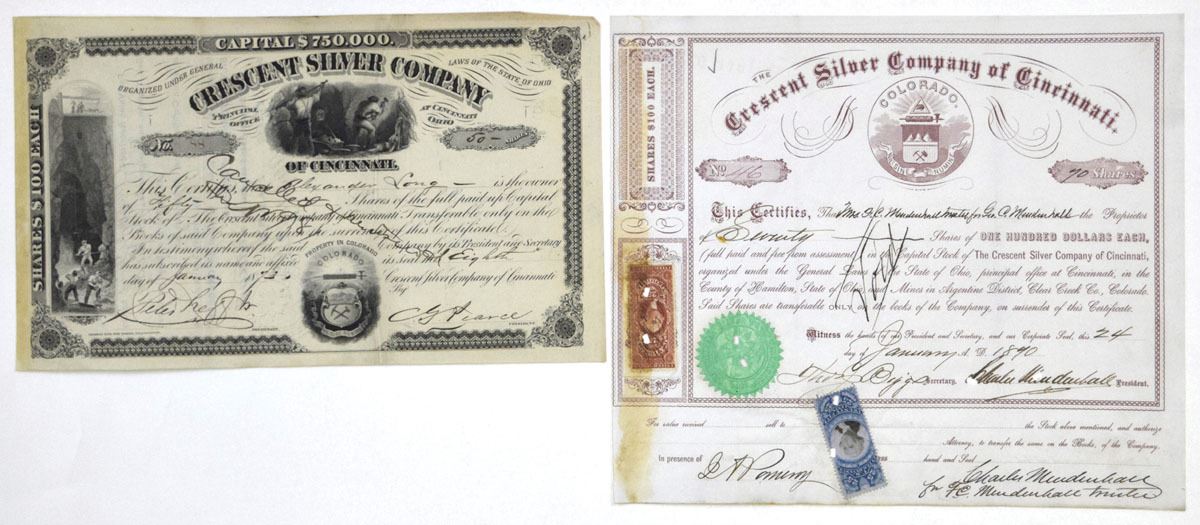 CAPITAL $750.000.
ORGANIZED UNDER GENERAL LAWS OF THE STATE OF OHIO
CRESCENT SILVER COMPANY
PRINCIPAL OFFICE AT CINCINNATI OHIO
No. 88
50 Shares
OF CINCINNATI.
SHARES $100 EACH
This Certifies, that Alexander Long is the owner
of Fifty Shares of the full paid up Capital
Stock of The Crescent Silver Company of Cincinnati Transferable only on the
Books of said Company upon the surrender of this Certificate.
In testimony whereof the said Company by its President and Secretary
has subscribed its name and affixed its seal this Eighth
day of January
Crescent Silver Company of Cincinnati
By
PROPERTY IN COLORADO
COLORADO
SECRETARY.
PRESIDENT.
SHARES $100 EACH.
THE
Crescent Silver Company of Cincinnati.
COLORADO.
No 116
70 Shares
This Certifies, That Mrs. F. C. Mendenhall Trustee for Geo. A. Mendenhall the Proprietor
of Seventy Shares of ONE HUNDRED DOLLARS EACH,
(full paid and free from assessment) in the Capital Stock of The Crescent Silver Company of Cincinnati,
organized under the General Laws of the State of Ohio, principal office at Cincinnati, in the
County of Hamilton, State of Ohio, and Mines in Argentine District, Clear Creek Co., Colorado.
Said Shares are transferable ONLY on the books of the Company, on surrender of this Certificate.
Witness the hands of the President and Secretary, and our Corporate Seal, this 24
day of January A. D. 1870
Thos Biggs Secretary. Charles Mendenhall President.
For value received sell to the Stock above mentioned, and authorize
Attorney, to transfer the same on the Books, of the Company.
In presence of hand and Seal
Charles Mendenhall
for F C. Mendenhall Trustee